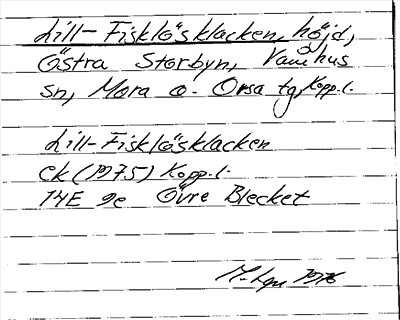 Lill-Fisklösklacken, höjd,
Östra Storbyn, Våmhus
sn, Mora o. Orsa tg, Kopp. l.
Lill-Fisklösklacken
Ek (1975) Kopp. l.
14E 9e Övre Blecket
1976